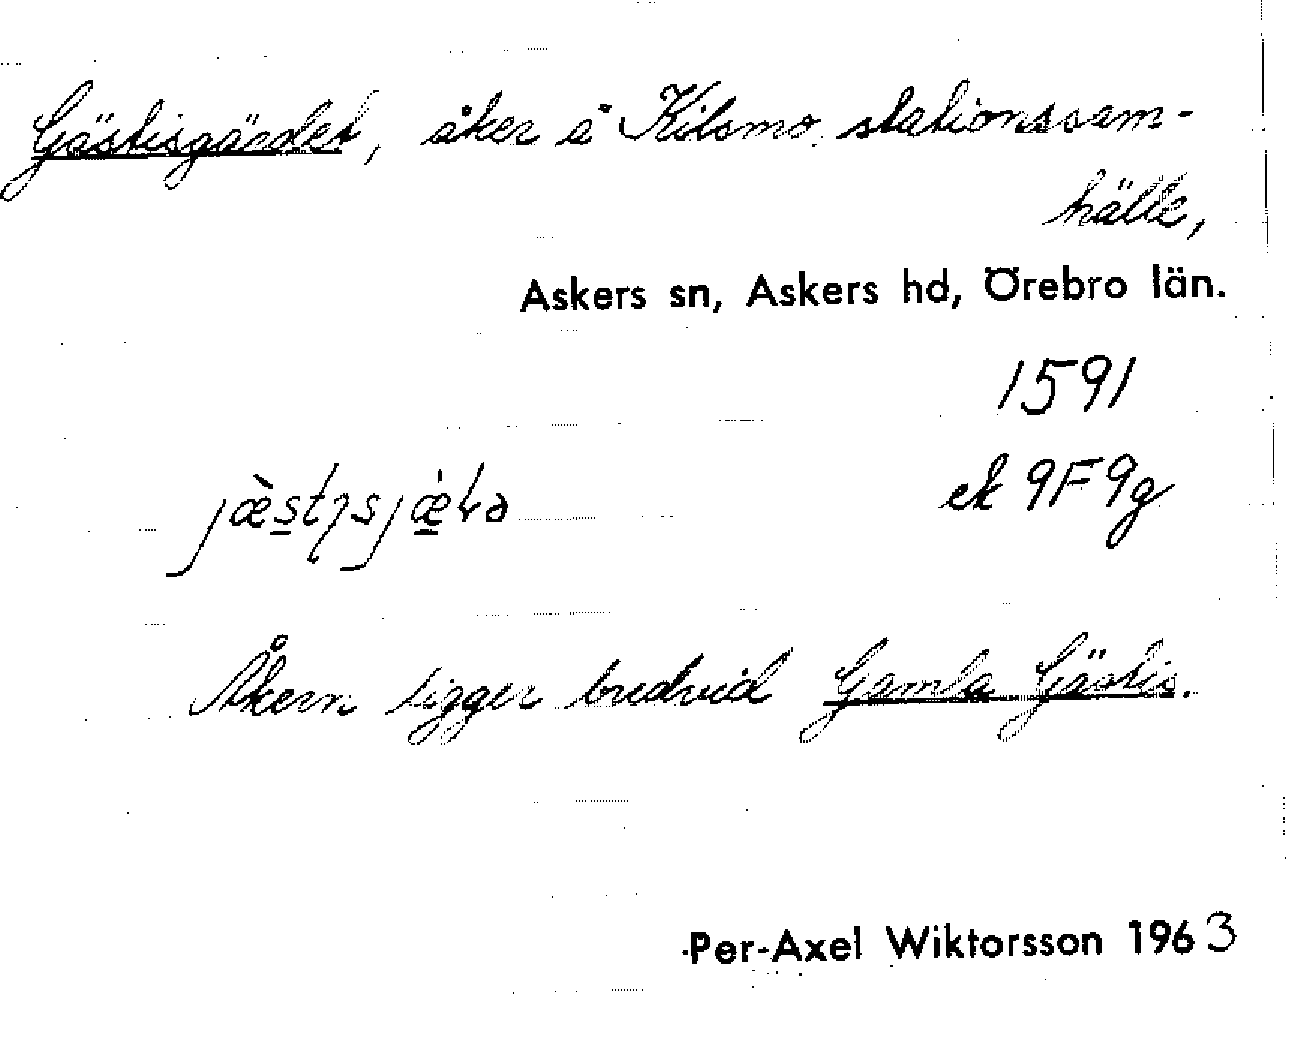 Gästisgärdet, åker i Kilsmo stationssam-
hälle,
Askers sn, Askers hd, Örebro län.
1591
ek 9F9g
Åkern ligger bredvid Gamla Gästis.
Per-Axel Wiktorsson 1963